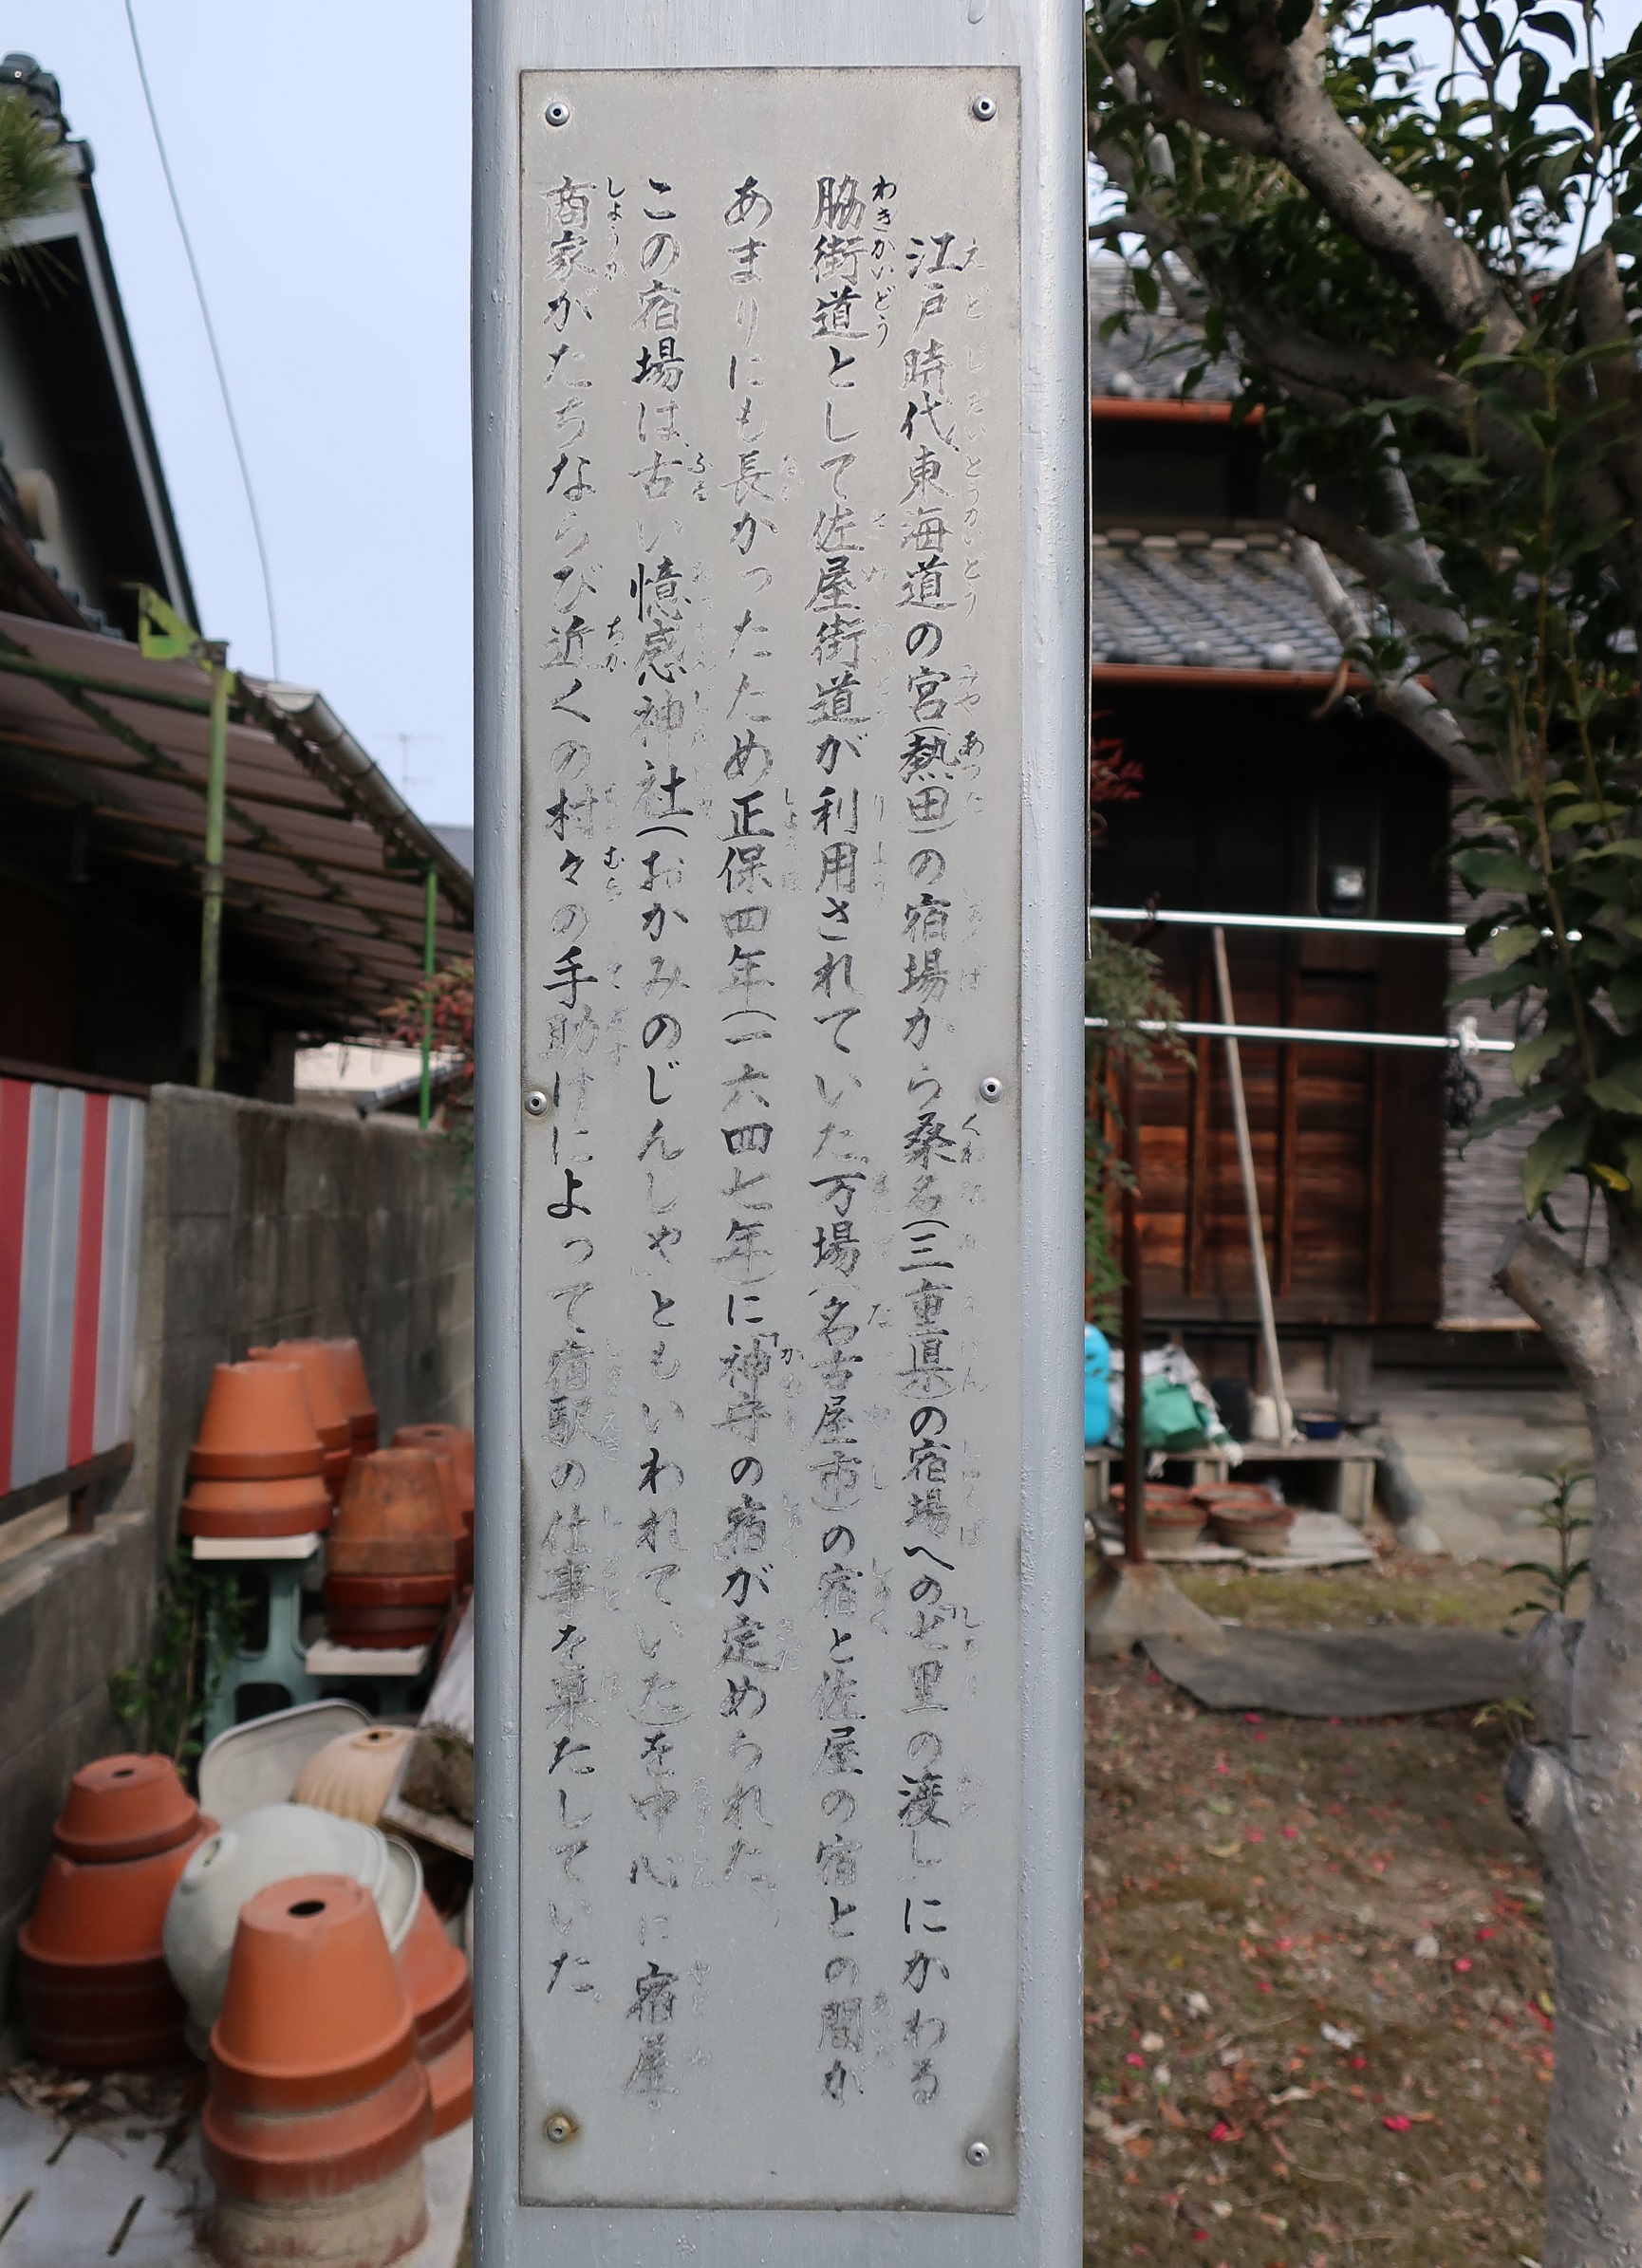 江戸時代、東海道の宮(熱田)の宿場から桑名(三重県)の宿場への「七里の渡し」にかわる
脇街道として佐屋街道が利用されていた。万場(名古屋市)の宿と佐屋の宿との間が
あまりにも長かったため正保四年(一六四七年)に「神守の宿」が定められた。
この宿場は、古い憶感神社(おかみのじんしゃ」ともいわれていた)を中心に宿屋、
商家がたちならび近くの村々の手助けによって宿駅の仕事を果たしていた。